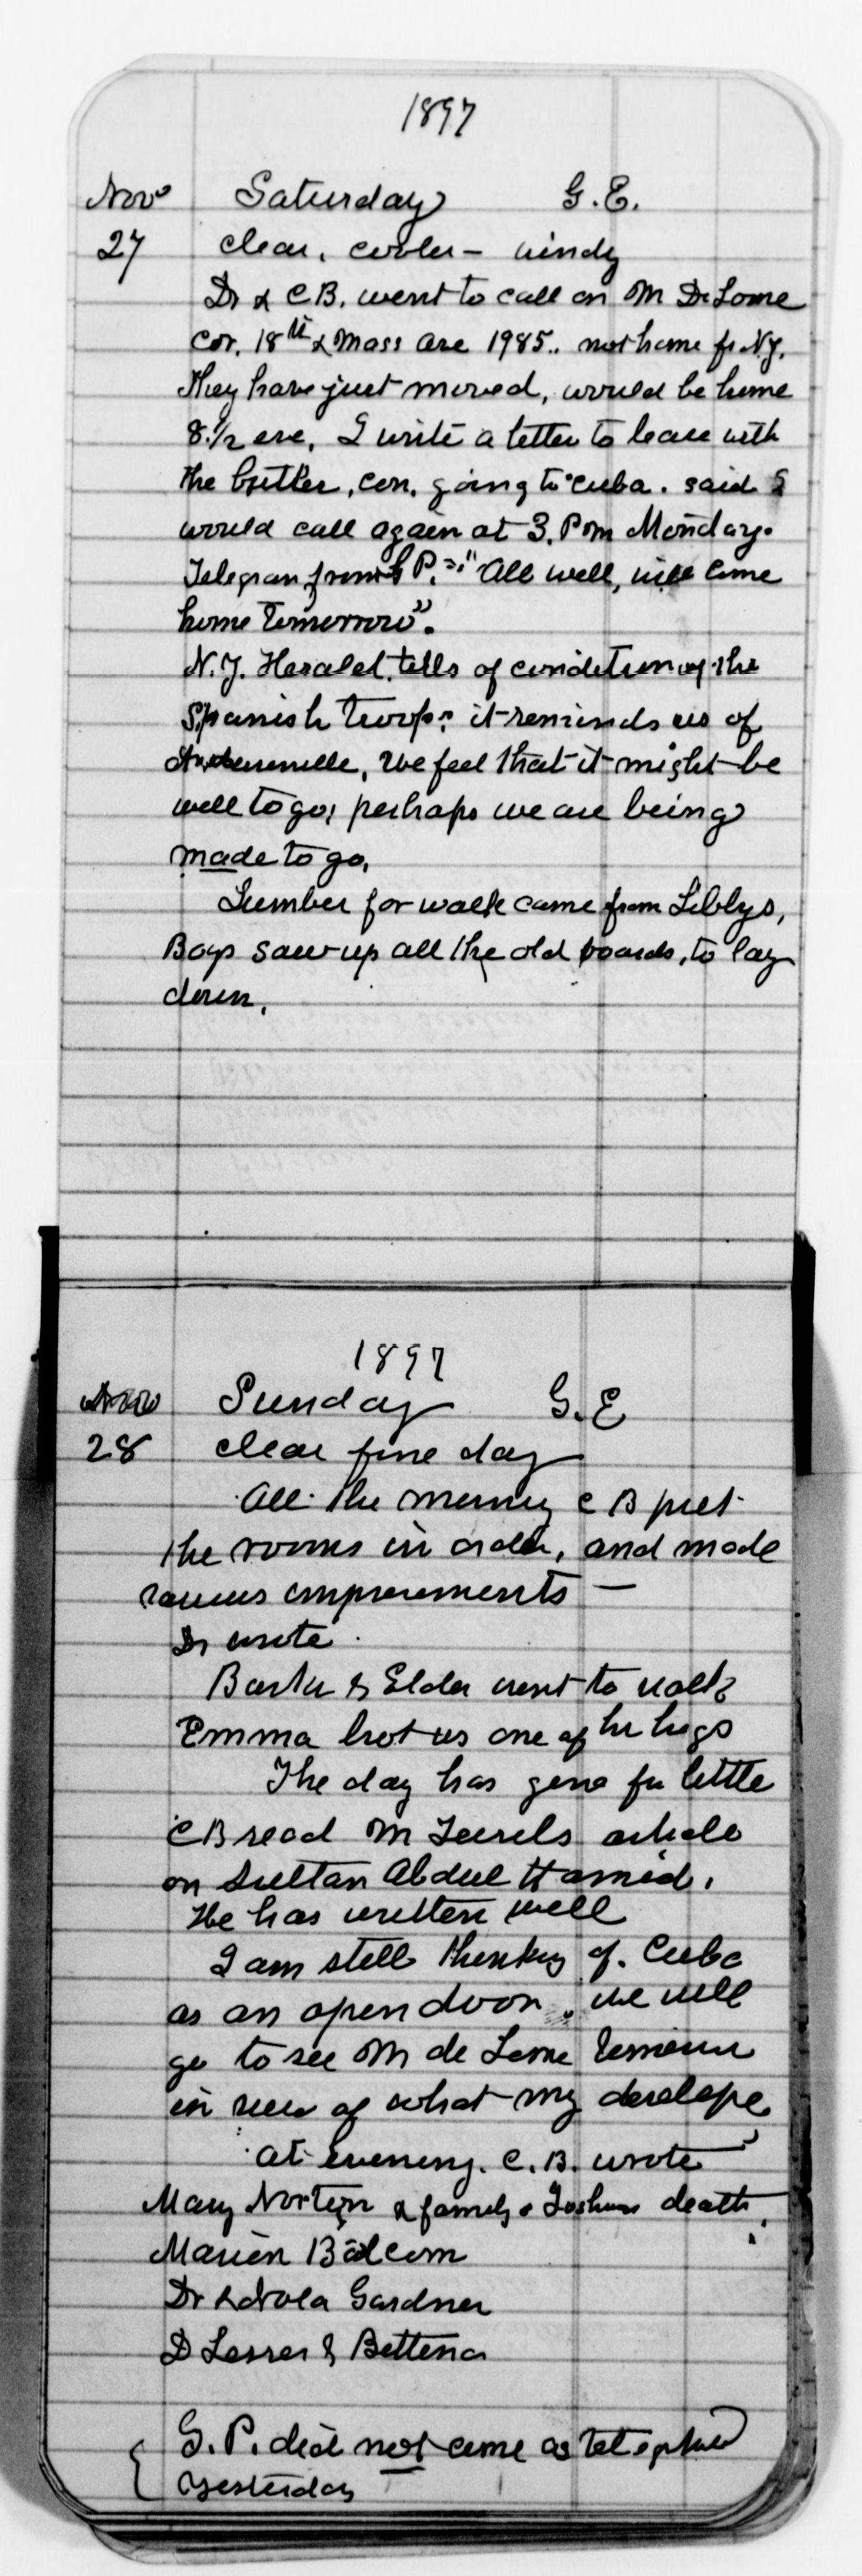 1897
Nov Saturday G.E.
27 clear, cooler - windy
Dr & C.B. went to call on M De Lome
cor. 18th & Mass Ave 1985.. not home fr N.Y.
They have just moved, would be home
8.1/2 eve, I write a letter to leave with
the butler, con. going to Cuba. said I
would call again at 3. P.m Monday.
Telegram from P. "All well, will come
home tomorrow".
N.Y. Herald, tells of condition of the
Spanish troops: it reminds us of
Andersonville, We feel that it might be
well to go, perhaps we are being
made to go,
Lumber for walk came from Libbys,
Boys saw up all the old boards, to lay
down,
1897
Nov Sunday G.E
28 clear fine day
All the morning C B put
the rooms in order, and made
various improvements -
Dr wrote.
Barker & Elder went to walk
Emma brot us one of her
The day has gone for little
C B read M article
on Sultan Abdul Hamid.
He has written well
I am still thinking of. Cuba
as an open door. we will
go to see M de Lome tomorrow
in view of what may develope
at evening. C.B. wrote
Mary Norton & family. Joshuas death,
Marion Balcom
Dr & Nola Gardner
D Lesser & Bettina
G.P. did not come as
yesterday